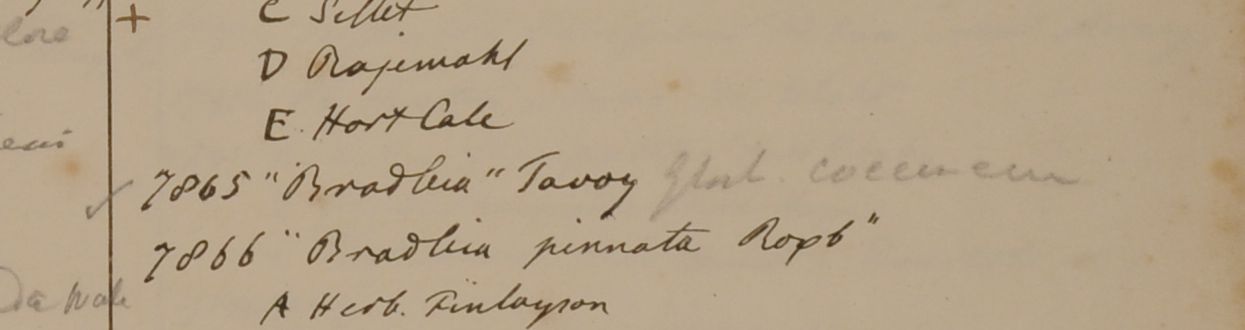 C Sillet
D Rajemahl
E. Hort Calc
7865 "Bradleia" Tavoy Gloch. coccineum
7866 "Bradleia pinnata Roxb"
A Herb. Finlayson